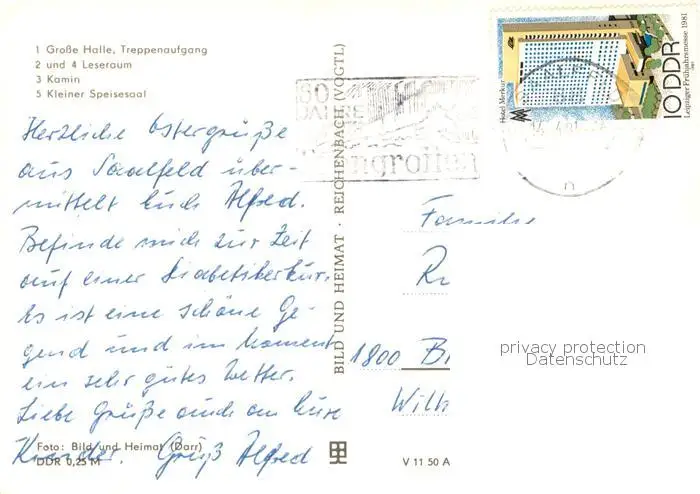 1 Große Halle, Treppenaufgang
2 und 4 Leseraum
3 Kamin
5 Kleiner Speisesaal
Herzliche Ostergrüße
aus Saalfeld über-
mittelt Euch Alfred.
Befinde mich zur Zeit
auf einer Diabetikerkur.
Es ist eine schöne Ge-
gend und im Moment
ein sehr gutes Wetter.
Liebe Grüße auch an Eure
Kinder. Gruß Alfred
Foto: Bild und Heimat (Darr)
DDR 0,25 M
BILD UND HEIMAT · REICHENBACH (VOGTL)
V 11 50 A
Hotel Merkur
10 DDR
Leipziger Frühjahrsmesse 1981
Familie
1800
privacy protection
Datenschutz